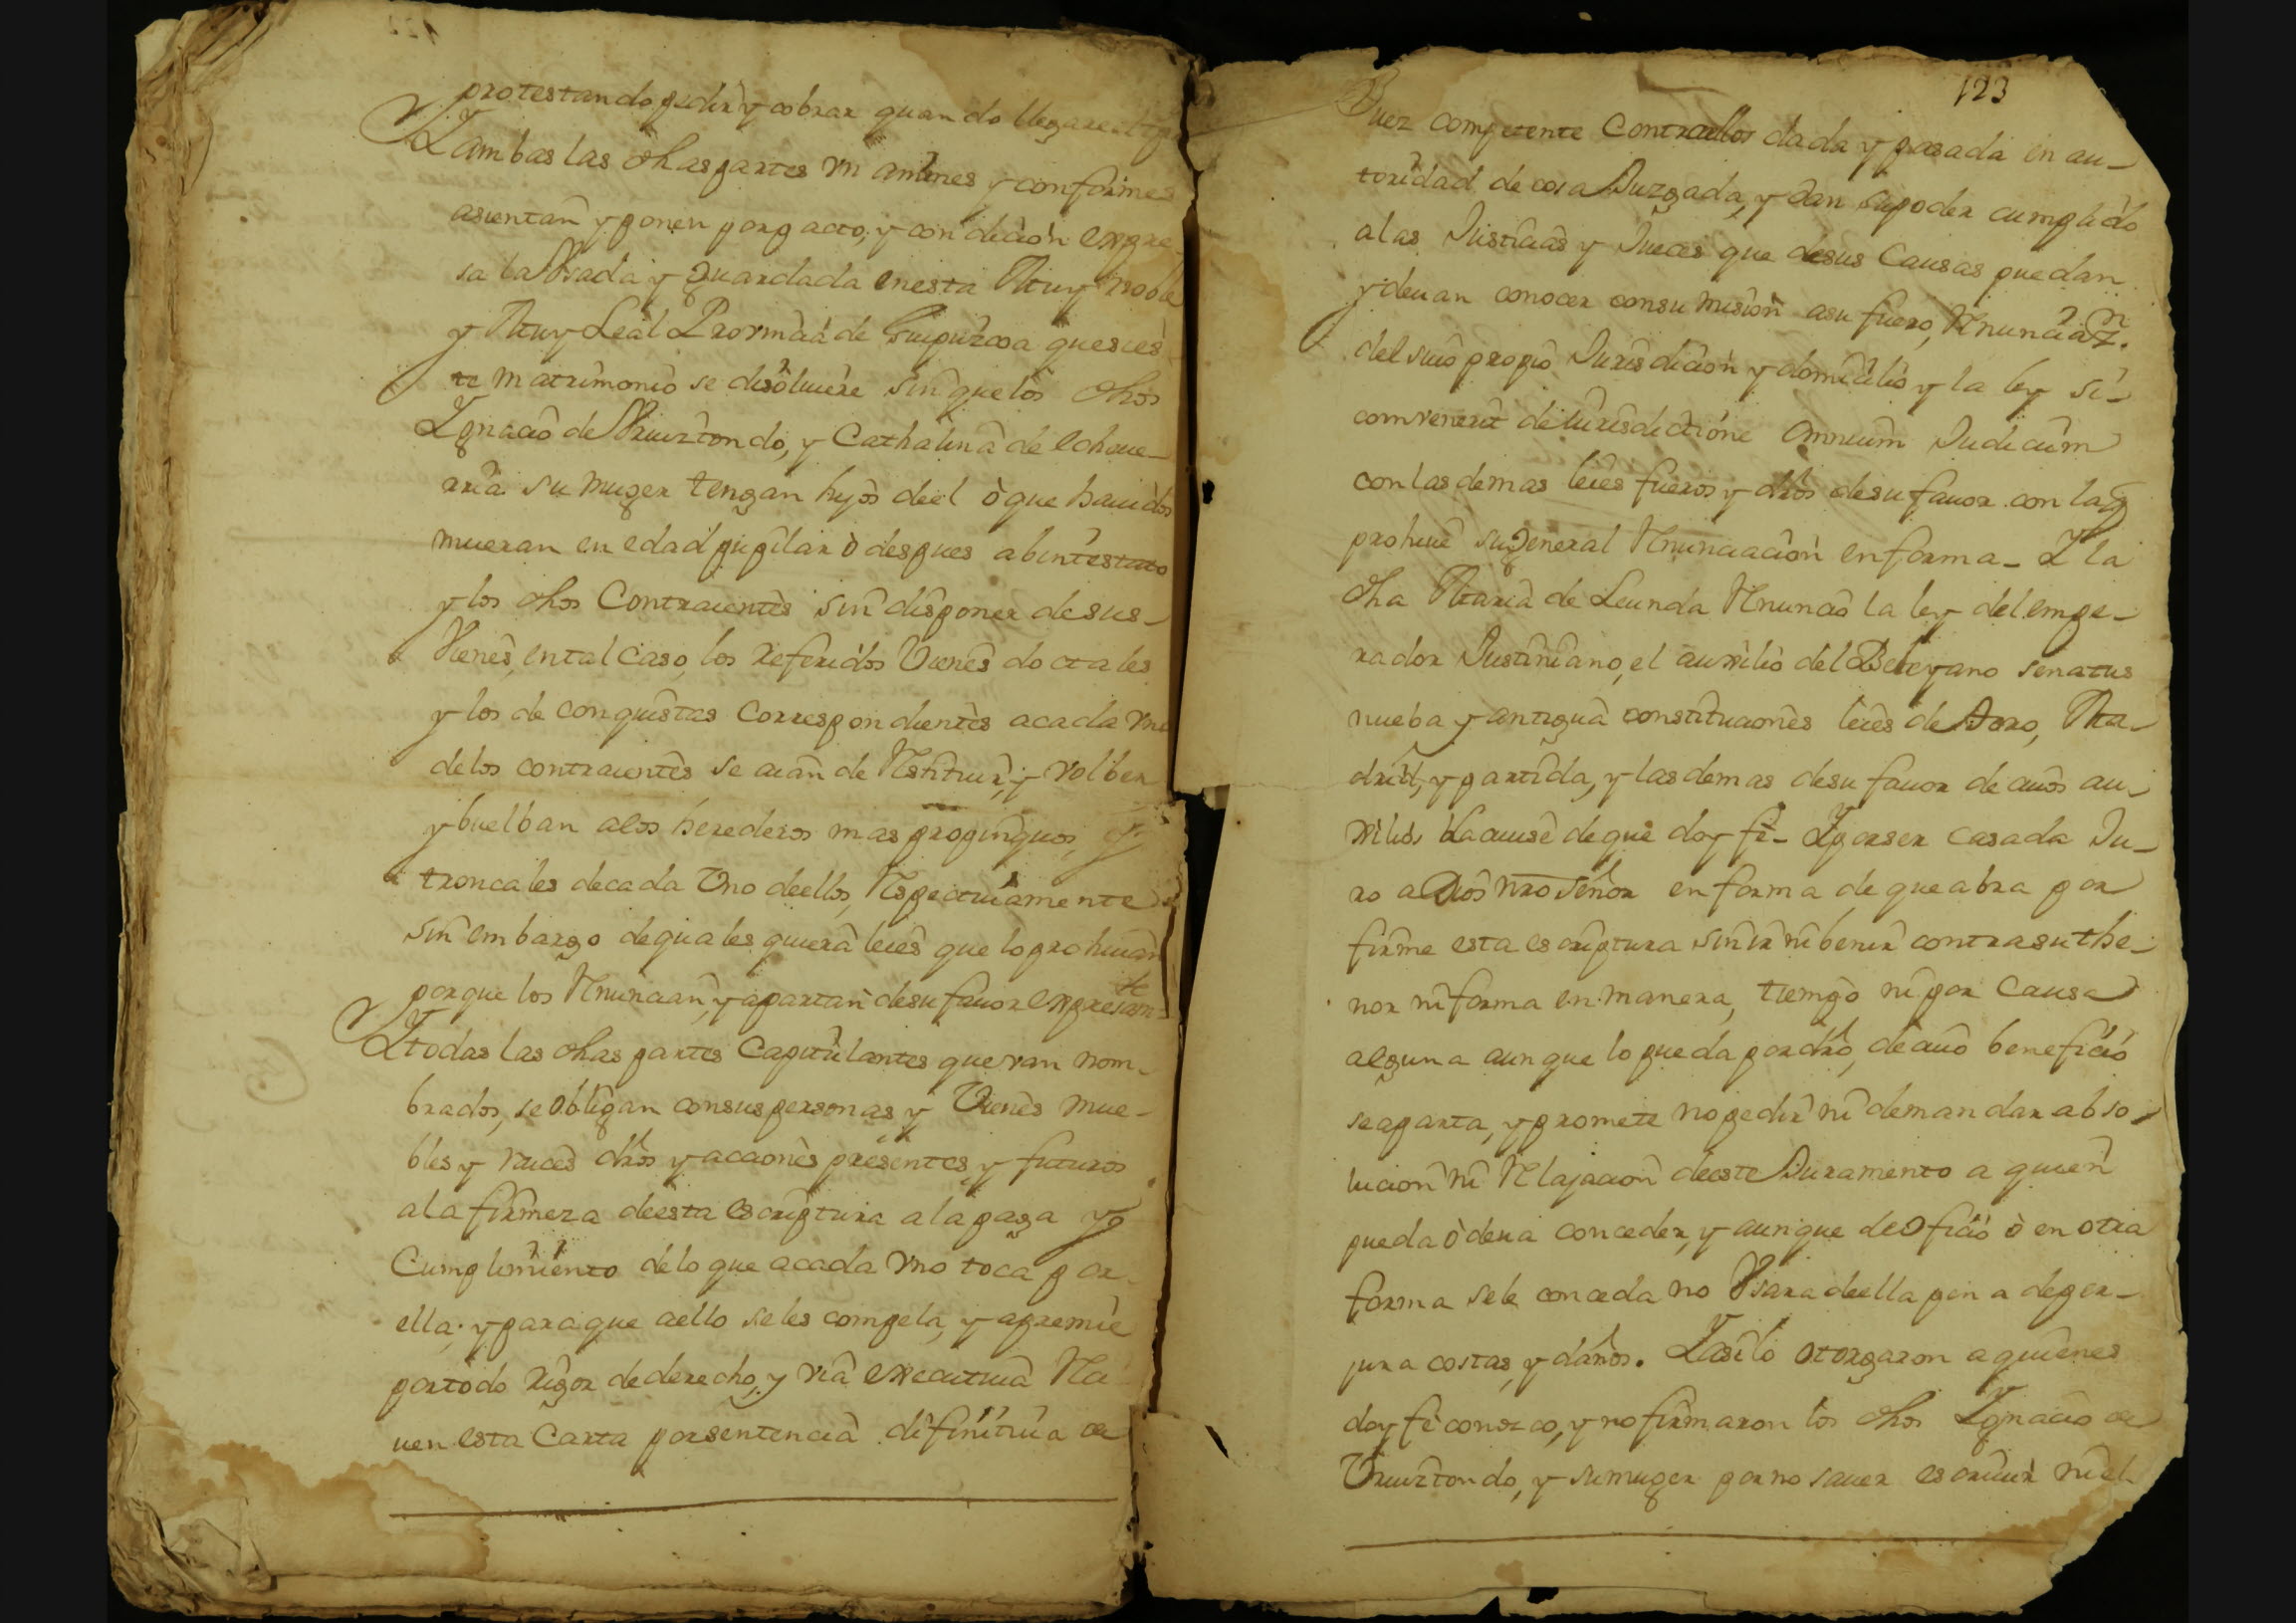 protestando pedir y cobrar quando llegare el
Y ambas las dhas partes vnanimes y conformes
asientan y ponen por pacto, y condicion expre
sa la Vsada y guardada en esta Muy noble
y Muy Leal Provinçia de Guipuzcoa que si es
te matrimonio se disolviere sin que los dhos
Ygnacio de Vruiztondo, y Cathalina de Echaue-
rria su muger tengan hijos de el ò que hauidos
mueran en edad pupilar ò despues abintestato
y los dhos Contraientes sin disponer de sus-
Vienes, en tal caso, los referidos Vienes doctales
y los de conquistas correspondientes a cada vno
de los contraientes se aian de Restituir, y volber
y buelban a los herederos mas propinquos, y
troncales de cada Vno de ellos, Respectiuamente
sin embargo de quales quiera leies que lo prohiuan
porque los Renuncian, y apartan de su fauor expresam.te
Y todas las dhas partes Capitulantes que van nom-
brados, se obligan con sus personas y Vienes mue-
bles y raices dhos y acciones presentes y futuros
a la firmeza de esta escriptura a la paga y
Cumplimiento de lo que a cada vno toca por
ella; y para que a ello se les compela, y apremie
por todo rigor de derecho, y via executiua Re
uen esta Carta por sentencia difinitiua de
123
Juez competente contra ellos dada y pasada en au-
toridad de cosa Juzgada, y dan su poder cumplido
a las Justicias y Jueces que de sus Causas puedan
y deuan conocer con sumision a su fuero, Renunciaz.n
del suio propio Jurisdicion y domicilio y la ley si-
comvenerit de iurisdictione omnium Judicum
con las demas leies fueros y dros de su fauor con la q
prohiue su general Renunciacion en forma- Y la
dha Maria de Leunda Renuncio la ley del empe-
rador Justiniano, el auxilio del Beleyano senatus
nueba y antigua constituciones leies de Toro, Ma-
drid, y partida, y las demas de su fauor de cuios au-
xilios la auise de que doy fè- Y por ser casada Ju-
ro a Dios nro señor en forma de que abra por
firme esta escriptura sin ir ni benir contra su the-
nor ni forma en manera, tiempo ni por Causa
alguna aunque lo pueda por dro, de cuio beneficio
se aparta, y promete no pedir ni demandar abso-
lucion ni Relajacion de este Juramento a quien
pueda ò deua conceder, y aunque de oficio ò en otra
forma se le conceda no Vsara de ella pena de per-
jura costas, y daños. Y asi lo otorgaron a quienes
doy fè conozco, y no firmaron los dhos Ygnacio de
Vruiztondo, y su muger por no sauer escriuir ni el